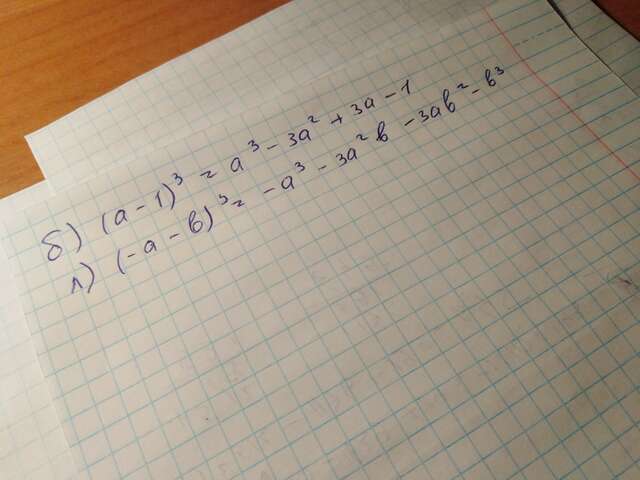 б) (a - 1)³ = a³ - 3a² + 3a - 1
л) (-a - в)³ = -a³ - 3a²в - 3aв² - в³